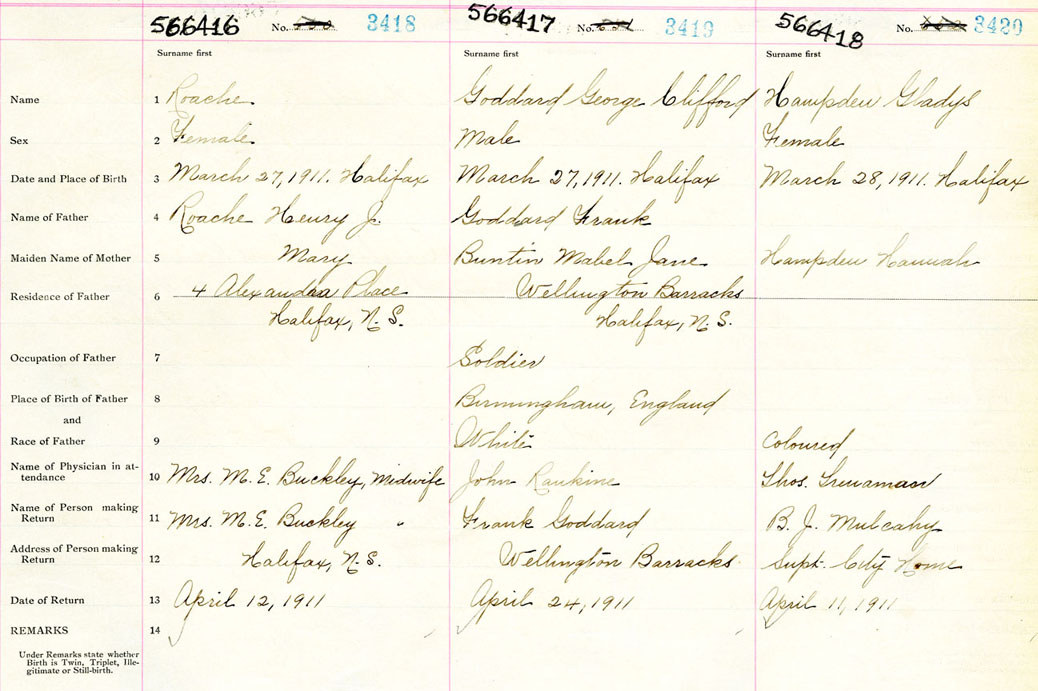 566416 No. 3418 566417 No. 3419 566418 No. 3420
Surname first Surname first Surname first
Name 1 Roache Goddard George Clifford Hampden Gladys
Sex 2 Female Male Female
Date and Place of Birth 3 March 27, 1911. Halifax March 27, 1911. Halifax March 28, 1911. Halifax
Name of Father 4 Roache Henry J. Goddard Frank
Maiden Name of Mother 5 Mary Buntin Mabel Jane Hampden Hannah
Residence of Father 6 4 Alexandra Place Wellington Barracks
Halifax, N.S. Halifax, N.S.
Occupation of Father 7 Soldier
Place of Birth of Father 8 Birmingham, England
and
Race of Father 9 White Coloured
Name of Physician in at-
tendance 10 Mrs. M.E. Buckley, Midwife John Rankine Thos. Trenaman
Name of Person making
Return 11 Mrs. M.E. Buckley " Frank Goddard B.J. Mulcahy
Address of Person making
Return 12 Halifax, N.S. Wellington Barracks Supt. City Home
Date of Return 13 April 12, 1911 April 24, 1911 April 11, 1911
REMARKS 14
Under Remarks state whether
Birth is Twin, Triplet, Ille-
gitimate or Still-birth.